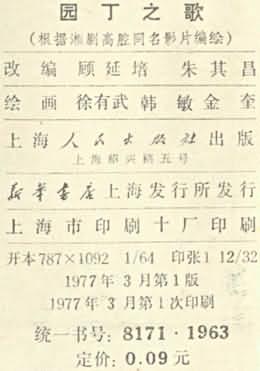 园丁之歌
(根据湘剧高腔同名影片编绘)
改编 顾延培 朱其昌
绘画 徐有武 韩敏 金奎
上海人民出版社出版
上海绍兴路五号
新华书店上海发行所发行
上海市印刷十厂印刷
开本787×1092 1/64 印张1 12/32
1977年3月第1版
1977年3月第1次印刷
统一书号: 8171·1963
定价: 0.09元